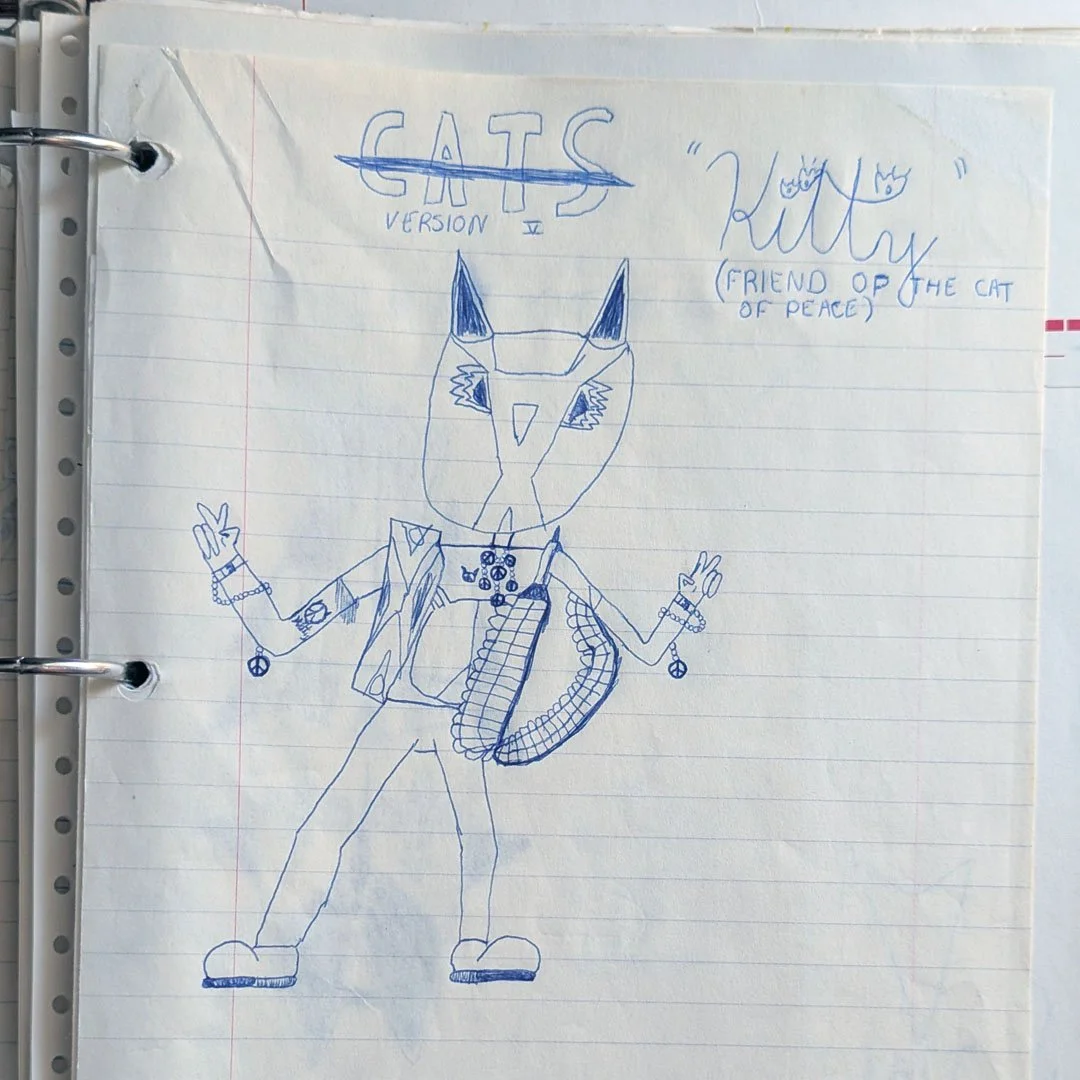 CATS
VERSION V
"Kitty"
(FRIEND OF THE CAT
OF PEACE)